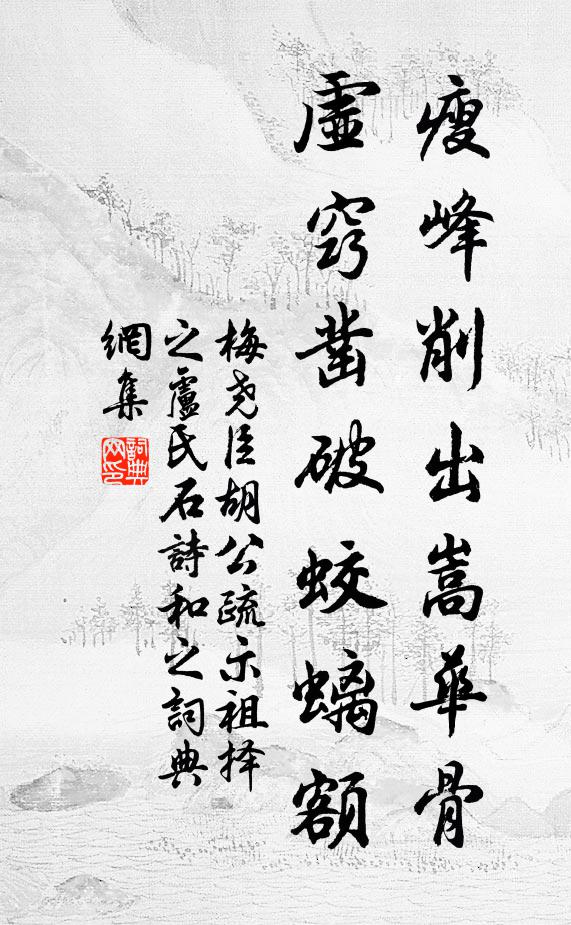 瘦峰削出嵩華骨
虛窍凿破蛟螭額
梅尧臣胡公疏示祖择
之盧氏石詩和之詞典
網集
詞典
网印